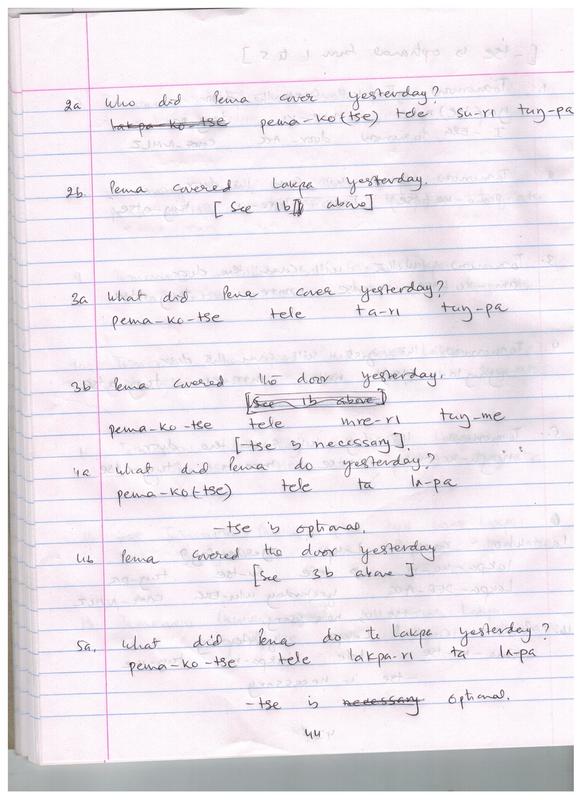 2a Who did Pema cover yesterday?
lakpa-ko-tse pema-ko(tse) tele su-ri tuŋ-pa
2b. Pema covered Lakpa yesterday.
[See 1b above]
3a What did Pema cover yesterday?
pema-ko-tse tele ta-ri tuŋ-pa
3b Pema covered the door yesterday.
[See 1b above]
pema-ko-tse tele mre-ri tuŋ-me
[-tse is necessary].
4a What did Pema do yesterday?
pema-ko(-tse) tele ta lʌ-pa
-tse is optional.
4b Pema covered the door yesterday
[See 3b above]
5a. What did Pema do to Lakpa yesterday?
pema-ko-tse tele lakpa-ri ta lʌ-pa
-tse is necessary optional.
44